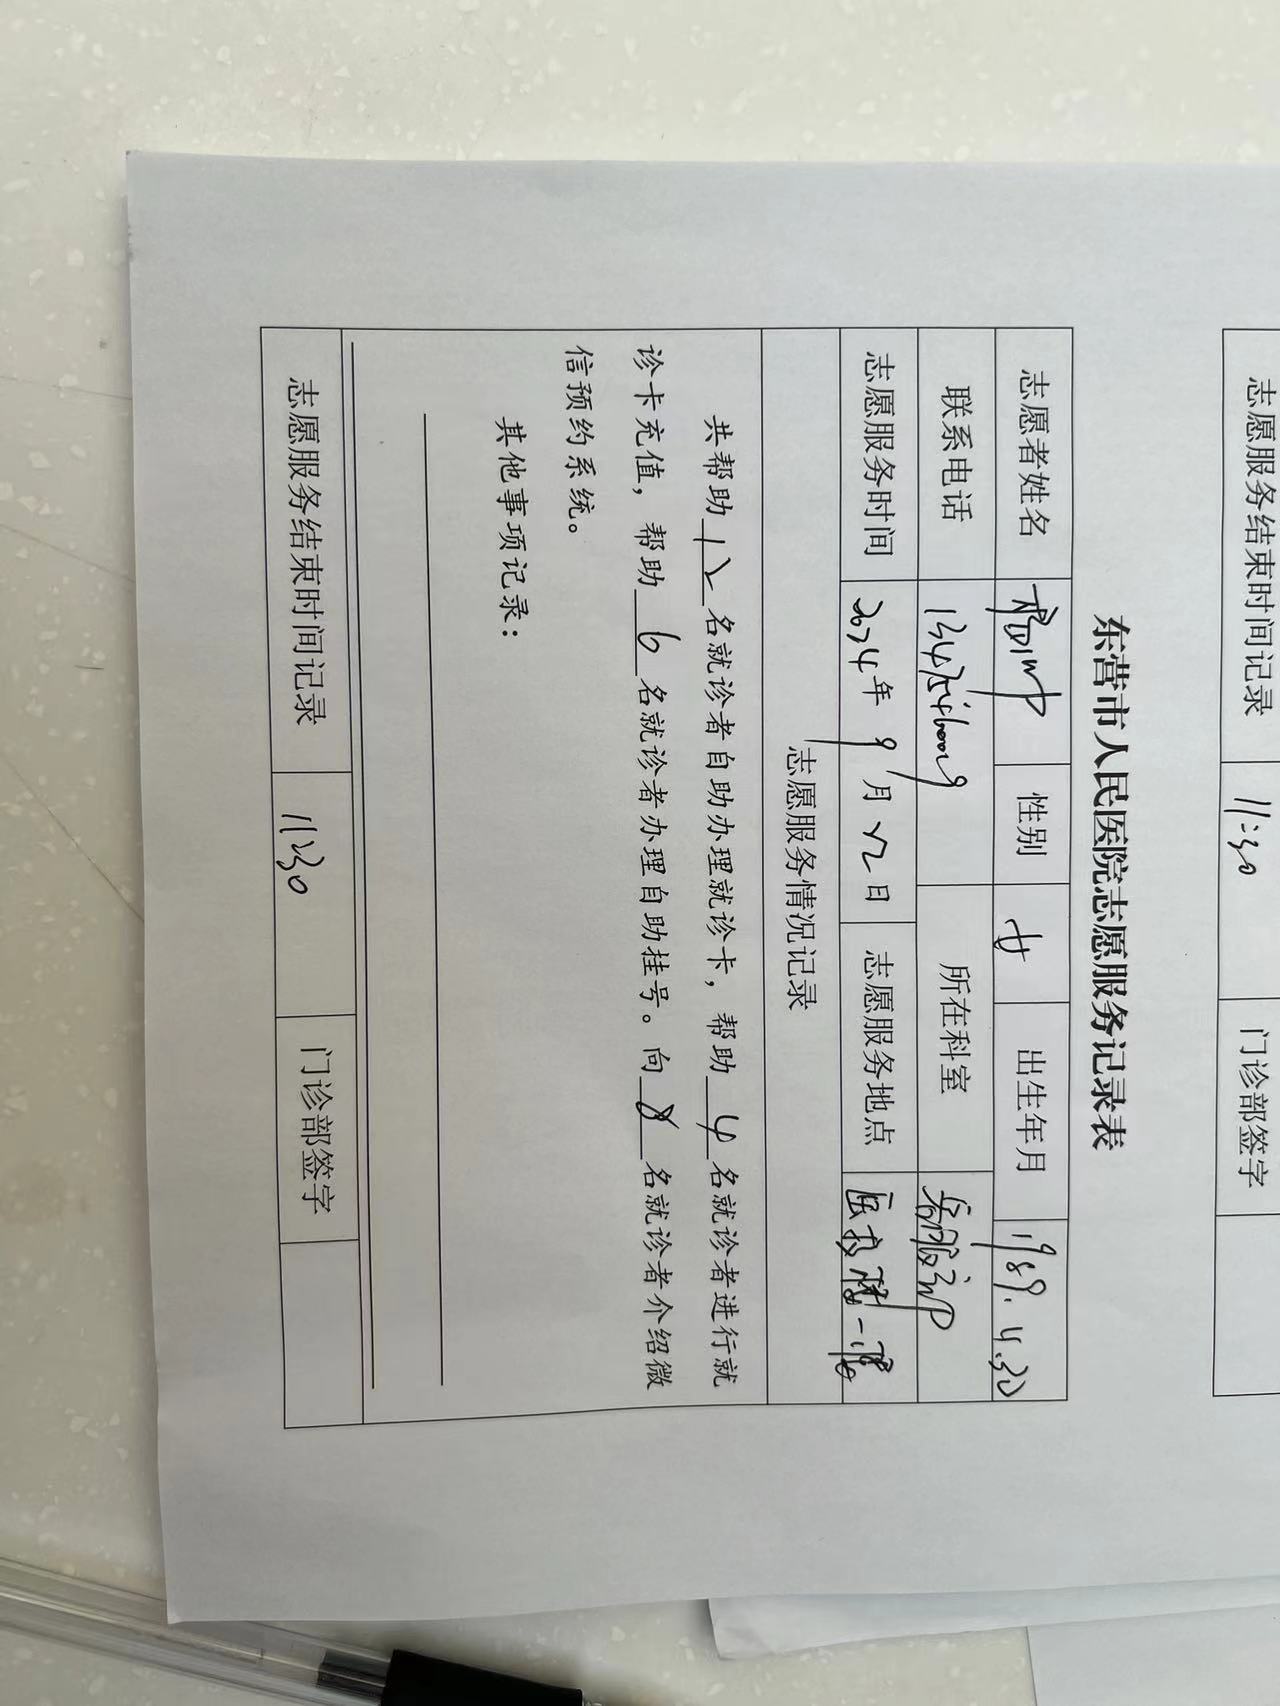 志愿服务结束时间记录 11:30 门诊部签字
东营市人民医院志愿服务记录表
志愿者姓名 性别 女 出生年月 1989.4.30
联系电话 所在科室 客服部
志愿服务时间 2024年9月22日 志愿服务地点 医技楼一楼
志愿服务情况记录
共帮助12名就诊者自助办理就诊卡，帮助4名就诊者进行就
诊卡充值，帮助6名就诊者办理自助挂号。向8名就诊者介绍微
信预约系统。
其他事项记录：
志愿服务结束时间记录 11:30 门诊部签字